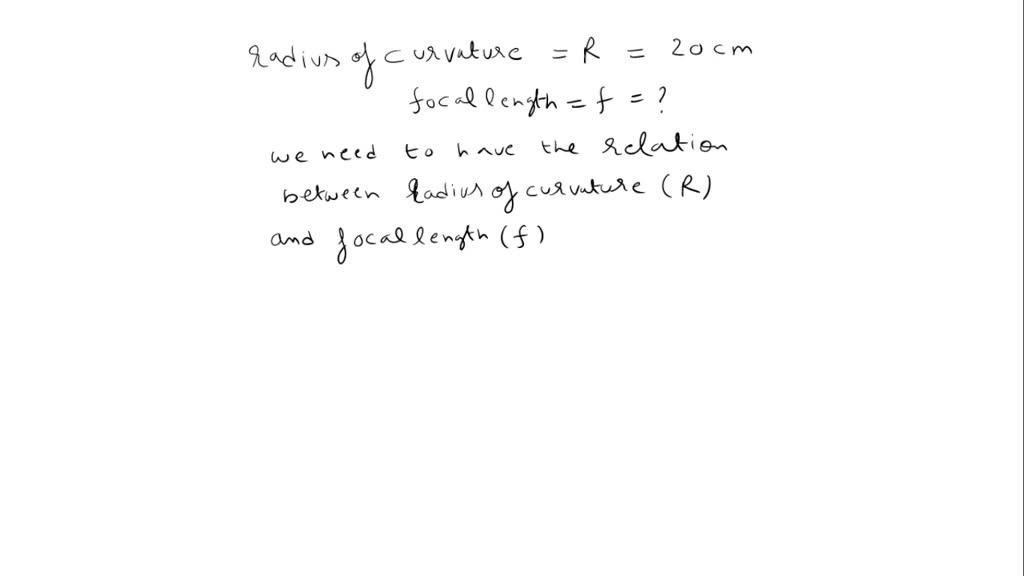 Radius of curvature = R = 20 cm
focal length = f = ?
we need to have the relation
between Radius of curvature (R)
and focal length (f)